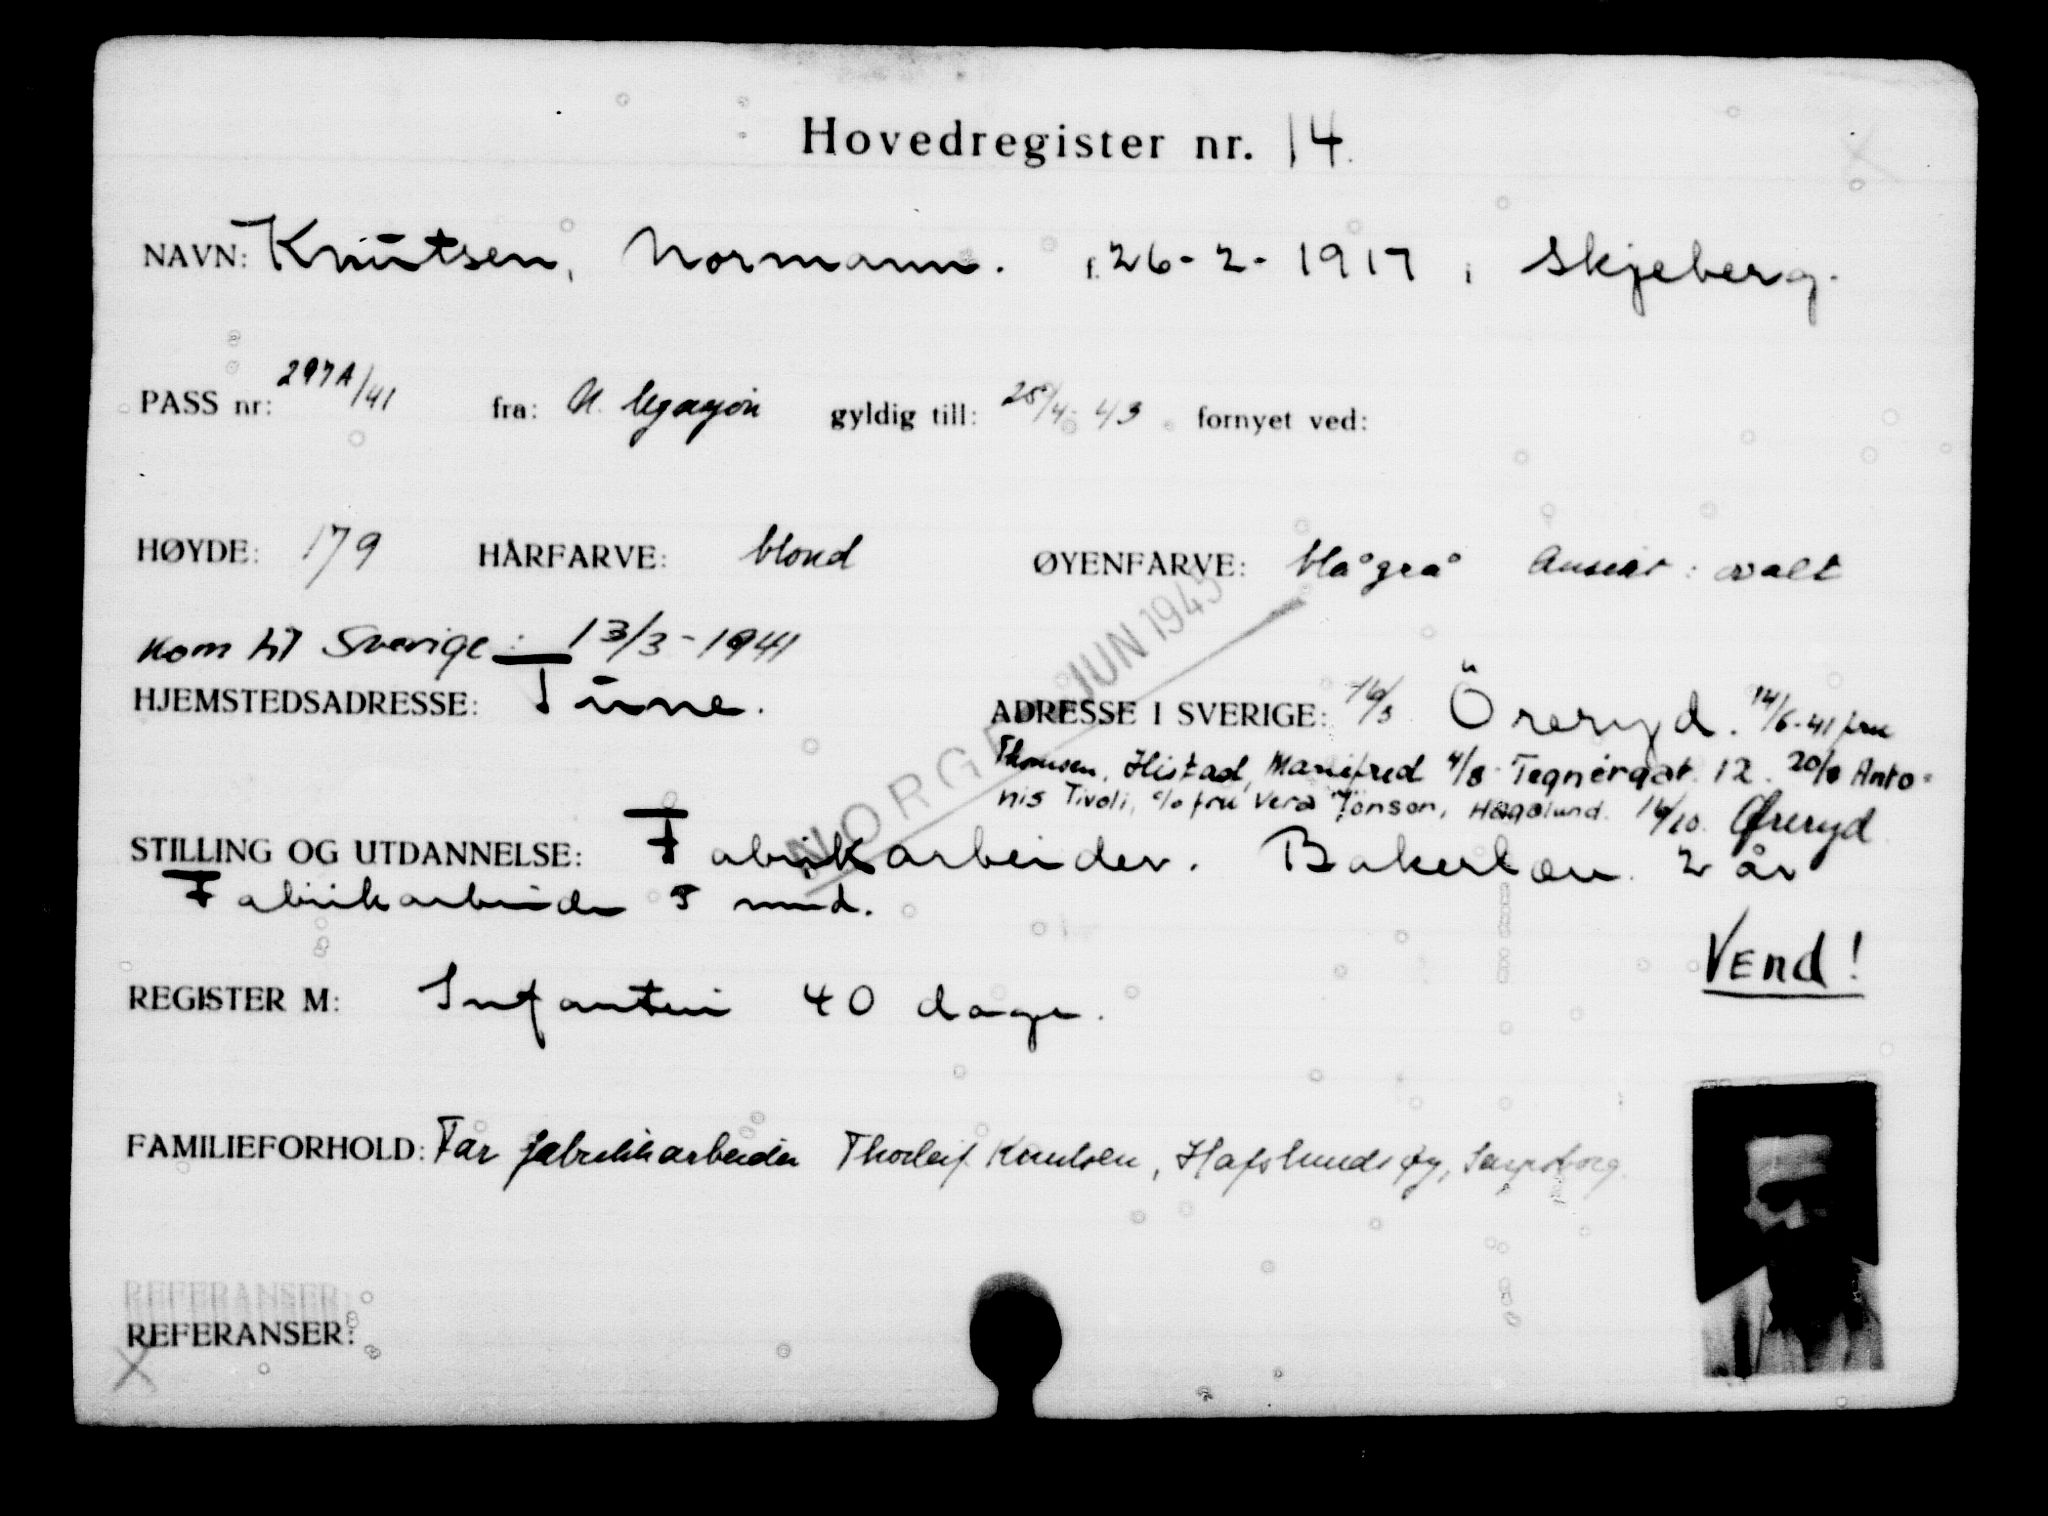 Hovedregister nr. 14.
NAVN: Knutsen, Normann. f. 26-2-1917 i Skjeberg.
PASS nr: 297A/41 fra: N. legasjon gyldig till: 25/4-43 fornyet ved:
HØYDE: 179 HÅRFARVE: blond ØYENFARVE: blågrå Ansikt: ovalt
Kom til Sverige: 13/3-1941
HJEMSTEDSADRESSE: Tune. ADRESSE I SVERIGE: 16/3 Öreryd. 14/6-41 fru
Thomsen, Histad, Mariefred 4/8 Tegnérgat. 12. 20/8 Anto-
nis Tivoli, c/o fru Vera Jonson, Hagalund. 16/10. Øreryd
STILLING OG UTDANNELSE: Fabrikarbeider. Bakerlær. 2 år
Fabrikarbeider 5 mnd.
NORGE JUN 1945
Vend!
REGISTER M: Infanteri 40 dage.
FAMILIEFORHOLD: Far fabrikkarbeider Thorleif Knutsen, Hafslundsøy, Sarpsborg.
REFERANSER:
REFERANSER: